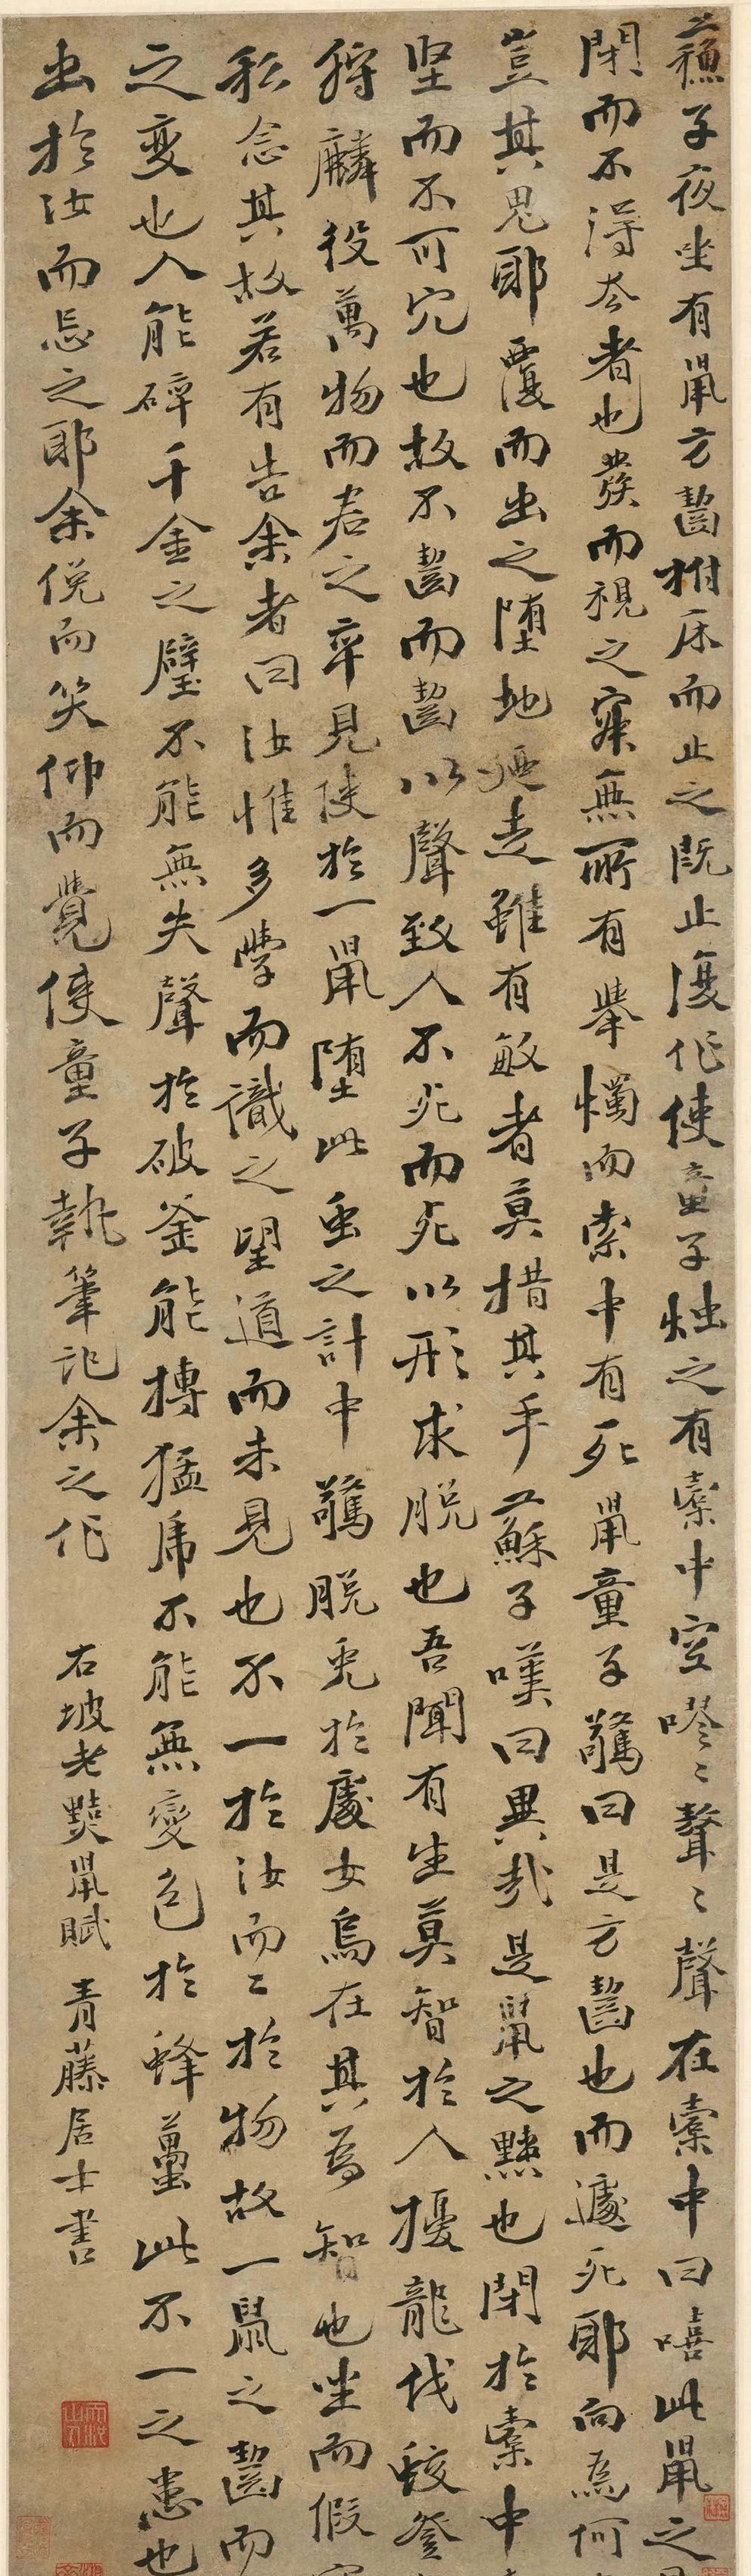 蘇子夜坐有鼠方齧拊床而止之既止復作使童子燭之有橐中空嘐〻聱〻聲在橐中曰嘻此鼠之
閉而不得去者也發而視之寂無所有舉燭而索中有死鼠童子驚曰是方齧也而遽死耶向為何
豈其鬼耶覆而出之墮地迺走雖有敏者莫措其手蘇子嘆曰異哉是鼠之黠也閉於橐中
堅而不可穴也故不齧而齧以聲致人不死而死以形求脫也吾聞有生莫智於人擾龍伐蛟登
狩麟役萬物而君之卒見使於一鼠墮此虫之計中驚脫兔於處女烏在其為智也坐而假
私念其故若有告余者曰汝惟多學而識之望道而未見也不一於汝而二於物故一鼠之齧而
之変也人能碎千金之璧不能無失聲於破釜能搏猛虎不能無變色於蜂蠆此不一之患也
出於汝而忘之耶余俛而笑仰而覺使童子執筆記余之作
右坡老黠鼠賦 青藤居士書